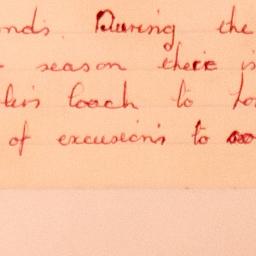 During the
season there is
coach to
of excusions to